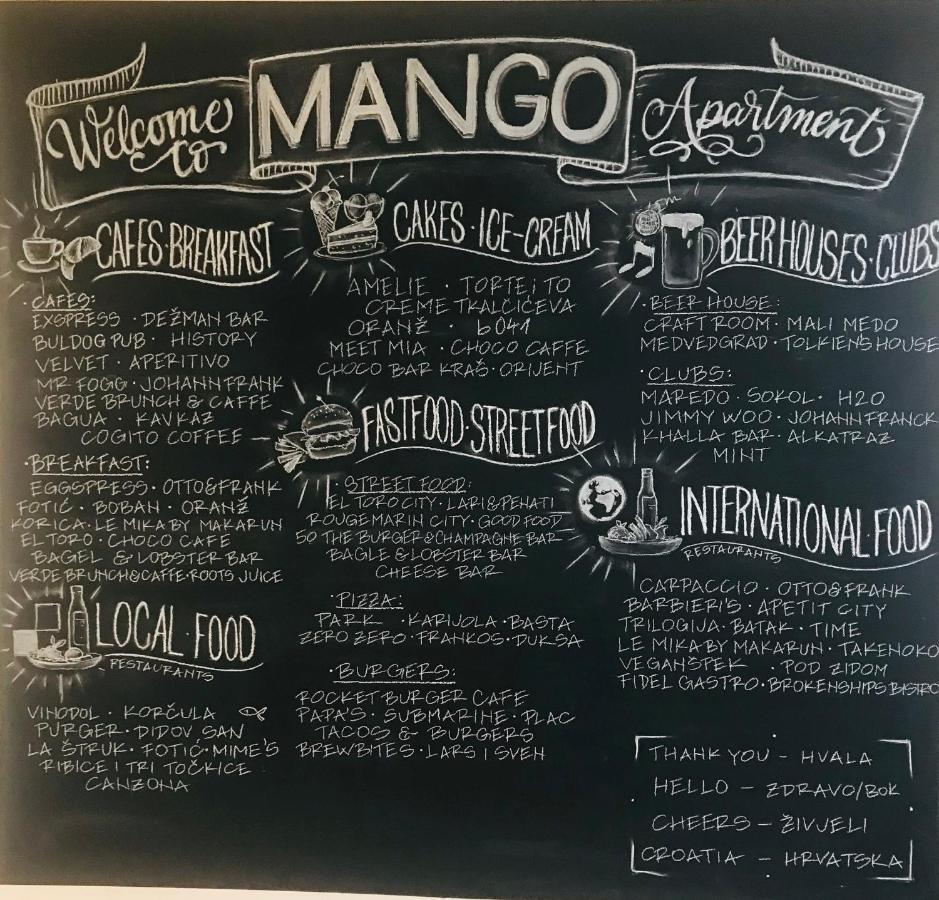 Welcome to
MANGO
Apartment
CAFES·BREAKFAST
·CAFES:
EXSPRESS · DEŽMAN BAR
BULDOG PUB · HISTORY
VELVET · APERITIVO
MR FOGG · JOHANN FRANK
VERDE BRUNCH & CAFFE
BAGUA · KAVKAZ
COGITO COFFEE
·BREAKFAST:
EGGSPRESS · OTTO&FRANK
FOTIĆ · BOBAN · ORANŽ
KORICA · LE MIKA BY MAKARUN
EL TORO · CHOCO CAFE
BAGEL & LOBSTER BAR
VERDE BRUNCH&CAFFE·ROOTS JUICE
LOCAL FOOD
RESTAURANTS
VINODOL · KORČULA
PURGER · DIDOV SAN
LA ŠTRUK · FOTIĆ · MIME'S
RIBICE I TRI TOČKICE
CANZONA
CAKES · ICE-CREAM
AMELIE · TORTE I TO
CREME TKALČIĆEVA
ORANŽ · b041
MEET MIA · CHOCO CAFFE
CHOCO BAR KRAŠ · ORIJENT
FASTFOOD·STREETFOOD
·STREET FOOD:
EL TORO CITY · LARI&PENATI
ROUGEMARIN CITY · GOOD FOOD
50 THE BURGER&CHAMPAGNE BAR
BAGLE & LOBSTER BAR
CHEESE BAR
·PIZZA:
PARK · KARIJOLA · BASTA
ZERO ZERO · FRANKOS · DUKSA
·BURGERS:
ROCKET BURGER CAFE
PAPA'S · SUBMARINE · PLAC
TACOS & BURGERS
BREWBITES · LARS I SVEN
BEER HOUSES·CLUBS
·BEER HOUSE:
CRAFT ROOM · MALI MEDO
MEDVEDGRAD · TOLKIENS HOUSE
·CLUBS:
MAREDO · SOKOL · H2O
JIMMY WOO · JOHANN FRANCK
KHALLA BAR · ALKATRAZ
MINT
INTERNATIONAL FOOD
RESTAURANTS
CARPACCIO · OTTO&FRANK
BARBIERI'S · APETIT CITY
TRILOGIJA · BATAK · TIME
LE MIKA BY MAKARUN · TAKENOKO
VEGANŠPEK · POD ZIDOM
FIDEL GASTRO·BROKENSHIPS BISTRO
THANK YOU - HVALA
HELLO - ZDRAVO/BOK
CHEERS - ŽIVJELI
CROATIA - HRVATSKA